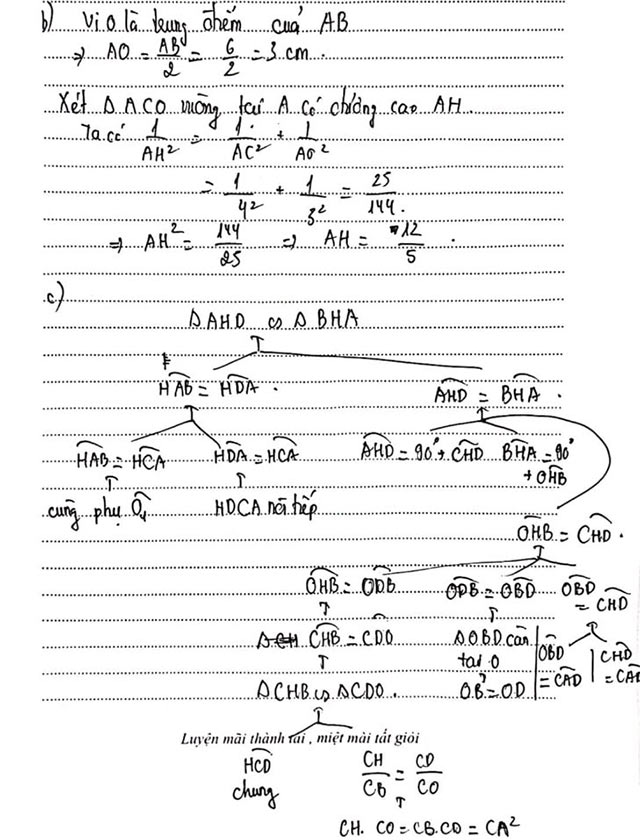 b) Vì O là trung điểm của AB
⇒ AO = AB/2 = 6/2 = 3 cm.
Xét Δ ACO vuông tại A có đường cao AH.
Ta có 1/AH² = 1/AC² + 1/AO²
= 1/4² + 1/3² = 25/144.
⇒ AH² = 144/25 ⇒ AH = 12/5.
c)
Δ AHD ∽ Δ BHA
HAB = HDA.
AHD = BHA.
HAB = HCA HDA = HCA AHD = 90° + CHD BHA = 90° + OHB
cùng phụ Ô₁ HDCA nội tiếp
OHB = CHD.
OHB = ODB ODB = OBD OBD = CHD
CHB = CDO Δ OBD cân tại O OBD = CAD CHD = CAD
Δ CHB ∽ Δ CDO. OB = OD
Luyện mãi thành tài, miệt mài tất giỏi
HCD chung CH/CB = CD/CO
CH. CO = CB.CD = CA²